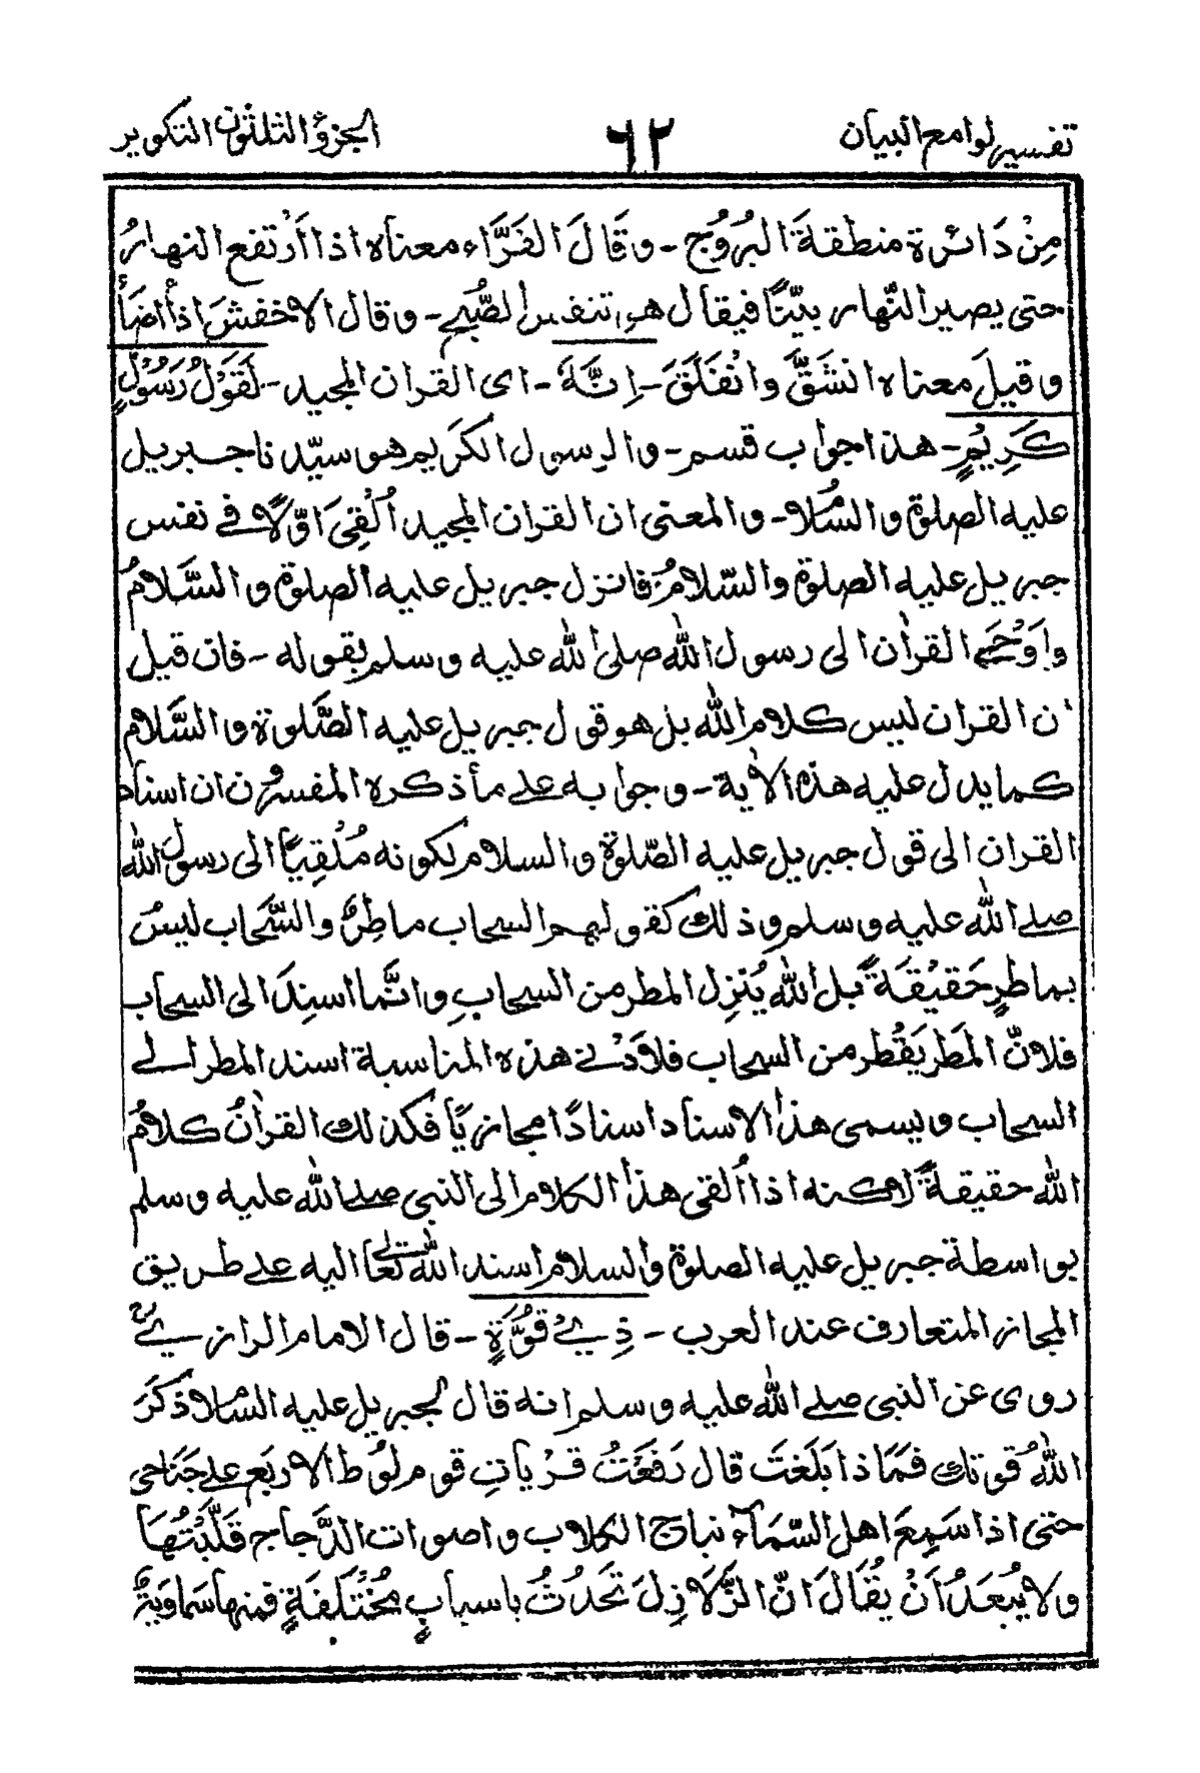 تفسير لوامع البيان ٦٢ الجزؤ الثلثون التكوير
مِنْ دَائرة منطقةَ البُرُوُج - وقَالَ الفَرَّاء معناه اذا أرْتفع النهارُ
حتى يصير النّهار بيّنًا فيقال هو تنفس الصُّبح - وقال الاخفشَ اذا اضَأَ
وقيلَ معناه انشَقَّ وانْفَلَقَ - اِنَّهٗ - اى القران المجيد - لَقَوْلُ رَسُوْلٍ
كَرِيْمٍ - هذا جواب قسم - والرسول الكَريم هو سيّدنا جبريل
عليه الصلوة والسّلام - والمعنى ان القران المجيد اُلْقِىَ اوّلًا فى نفس
جبريل عليه الصلوة والسّلامُ فانزل جبريل عليه الصلوة والسَّلامُ
واَوْحىَ القراٰن الى رسول الله صلى الله عليه وسلم بقوله - فان قيل
ان القران ليس كلام الله بل هو قول جبريل عليه الصَّلوة والسَّلام
كما يدل عليه هذه الأية - وجوابه على مأذكره المفسرون ان اسناد
القران الى قول جبريل عليه الصّلوة والسلام لكونه مُلْقِيًا الى رسول الله
صلى الله عليه وسلم وذلك كقولهم السحاب ماطِرٌ والسَّحاب ليسَ
بماطرٍ حَقيْقَةً بل الله يُنزل المطر من السحابِ وانَّما اسنِدَ الى السحاب
فلانّ المَطَر يَقْطر من السحاب فلاَدْنى هذه المناسبة اسند المطر الى
السحاب ويسمى هذا الاسناد اسنادًا مجازيًا فكذلك القراٰنُ كلامُ
الله حقيقةً لاكنه اذا اُلقى هذا الكلام الى النبى صلى الله عليه وسلم
بواسطة جبريل عليه الصلوة والسلام اسند الله تعالى اليه على طريق
المجاز المتعارف عند العرب - ذِىْ قُوَّةٍ - قال الامام الرازىؒ
روى عن النبى صلى الله عليه وسلم انه قال لجبريل عليه السّلام ذكَرَ
اللهُ قوتك فمَاذا بَلَغتَ قال رَفَعْتُ قرياتِ قوم لُوْط الاربَع على جَنَاحى
حتى اذا سَمِعَ اهل السّمَآء نباح الكلاب واصوات الدَّجاج قَلَّبْتُهَا
ولا يُبْعَدُ اَنْ يُقَالَ انّ الزّلَازِلَ تَحْدُثُ باسبابٍ مُخْتَلِفَةٍ فمنها سَماوَيةٌ